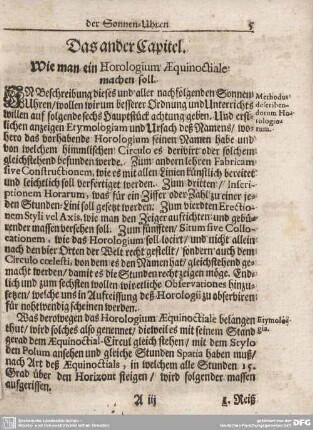 der Sonnen-Uhren 5
Das ander Capitel.
Wie man ein Horologium Æquinoctiale
machen soll.
IN Beschreibung dieses und aller nachfolgenden Sonnen
Uhren/ wollen wir um besserer Ordnung und Unterrichts
willen auf folgende sechs Hauptstück achtung geben. Und erst-
lichen anzeigen Etymologiam und Ursach deß Namens/ wo-
hero das vorhabende Horologium seinen Namen habe und
von welchem himmlischen Circulo es derivirt oder solchem
gleichstehend befunden werde. Zum andern lehren Fabricam
sive Constructionem, wie es mit allen Linien künstlich bereitet
und leichtlich soll verfertiget werden. Zum dritten/ Inscri-
ptionem Horarum, was für ein Ziffer oder Zahl zu einer je-
den Stunden-Lini soll gesetzt werden. Zum vierdten Erectio-
nem Styli vel Axis, wie man den Zeiger aufrichten und gebü-
render massen versehen soll. Zum fünfften/ Situm sive Collo-
cationem, wie das Horologium soll locirt/ und nicht allein
nach den vier Orten der Welt recht gestellt/ sondern auch dem
Circulo cœlesti, von dem es den Namen hat/ gleichstehend ge-
macht werden/ damit es die Stunden recht zeigen möge. End-
lich und zum sechsten wollen wir etliche Observationes hinzu-
setzen/ welche uns in Aufreissung deß Horologii zu observiren
für nohtwendig scheinen werden.
Was derowegen das Horologium Æquinoctiale belangen
thut/ wird solches also genennet/ dieweil es mit seinem Stand
gerad dem Æquinoctial-Circul gleich stehen/ mit dem Stylo
den Polum ansehen und gleiche Stunden Spatia haben muß/
nach Art deß Æquinoctials, in welchem alle Stunden 15.
Grad über den Horizont steigen/ wird folgender massen
aufgerissen.
Methodus
describen-
dorum Ho-
rologio-
rum.
Etymolo-
gia.
A iij
1. Reiß